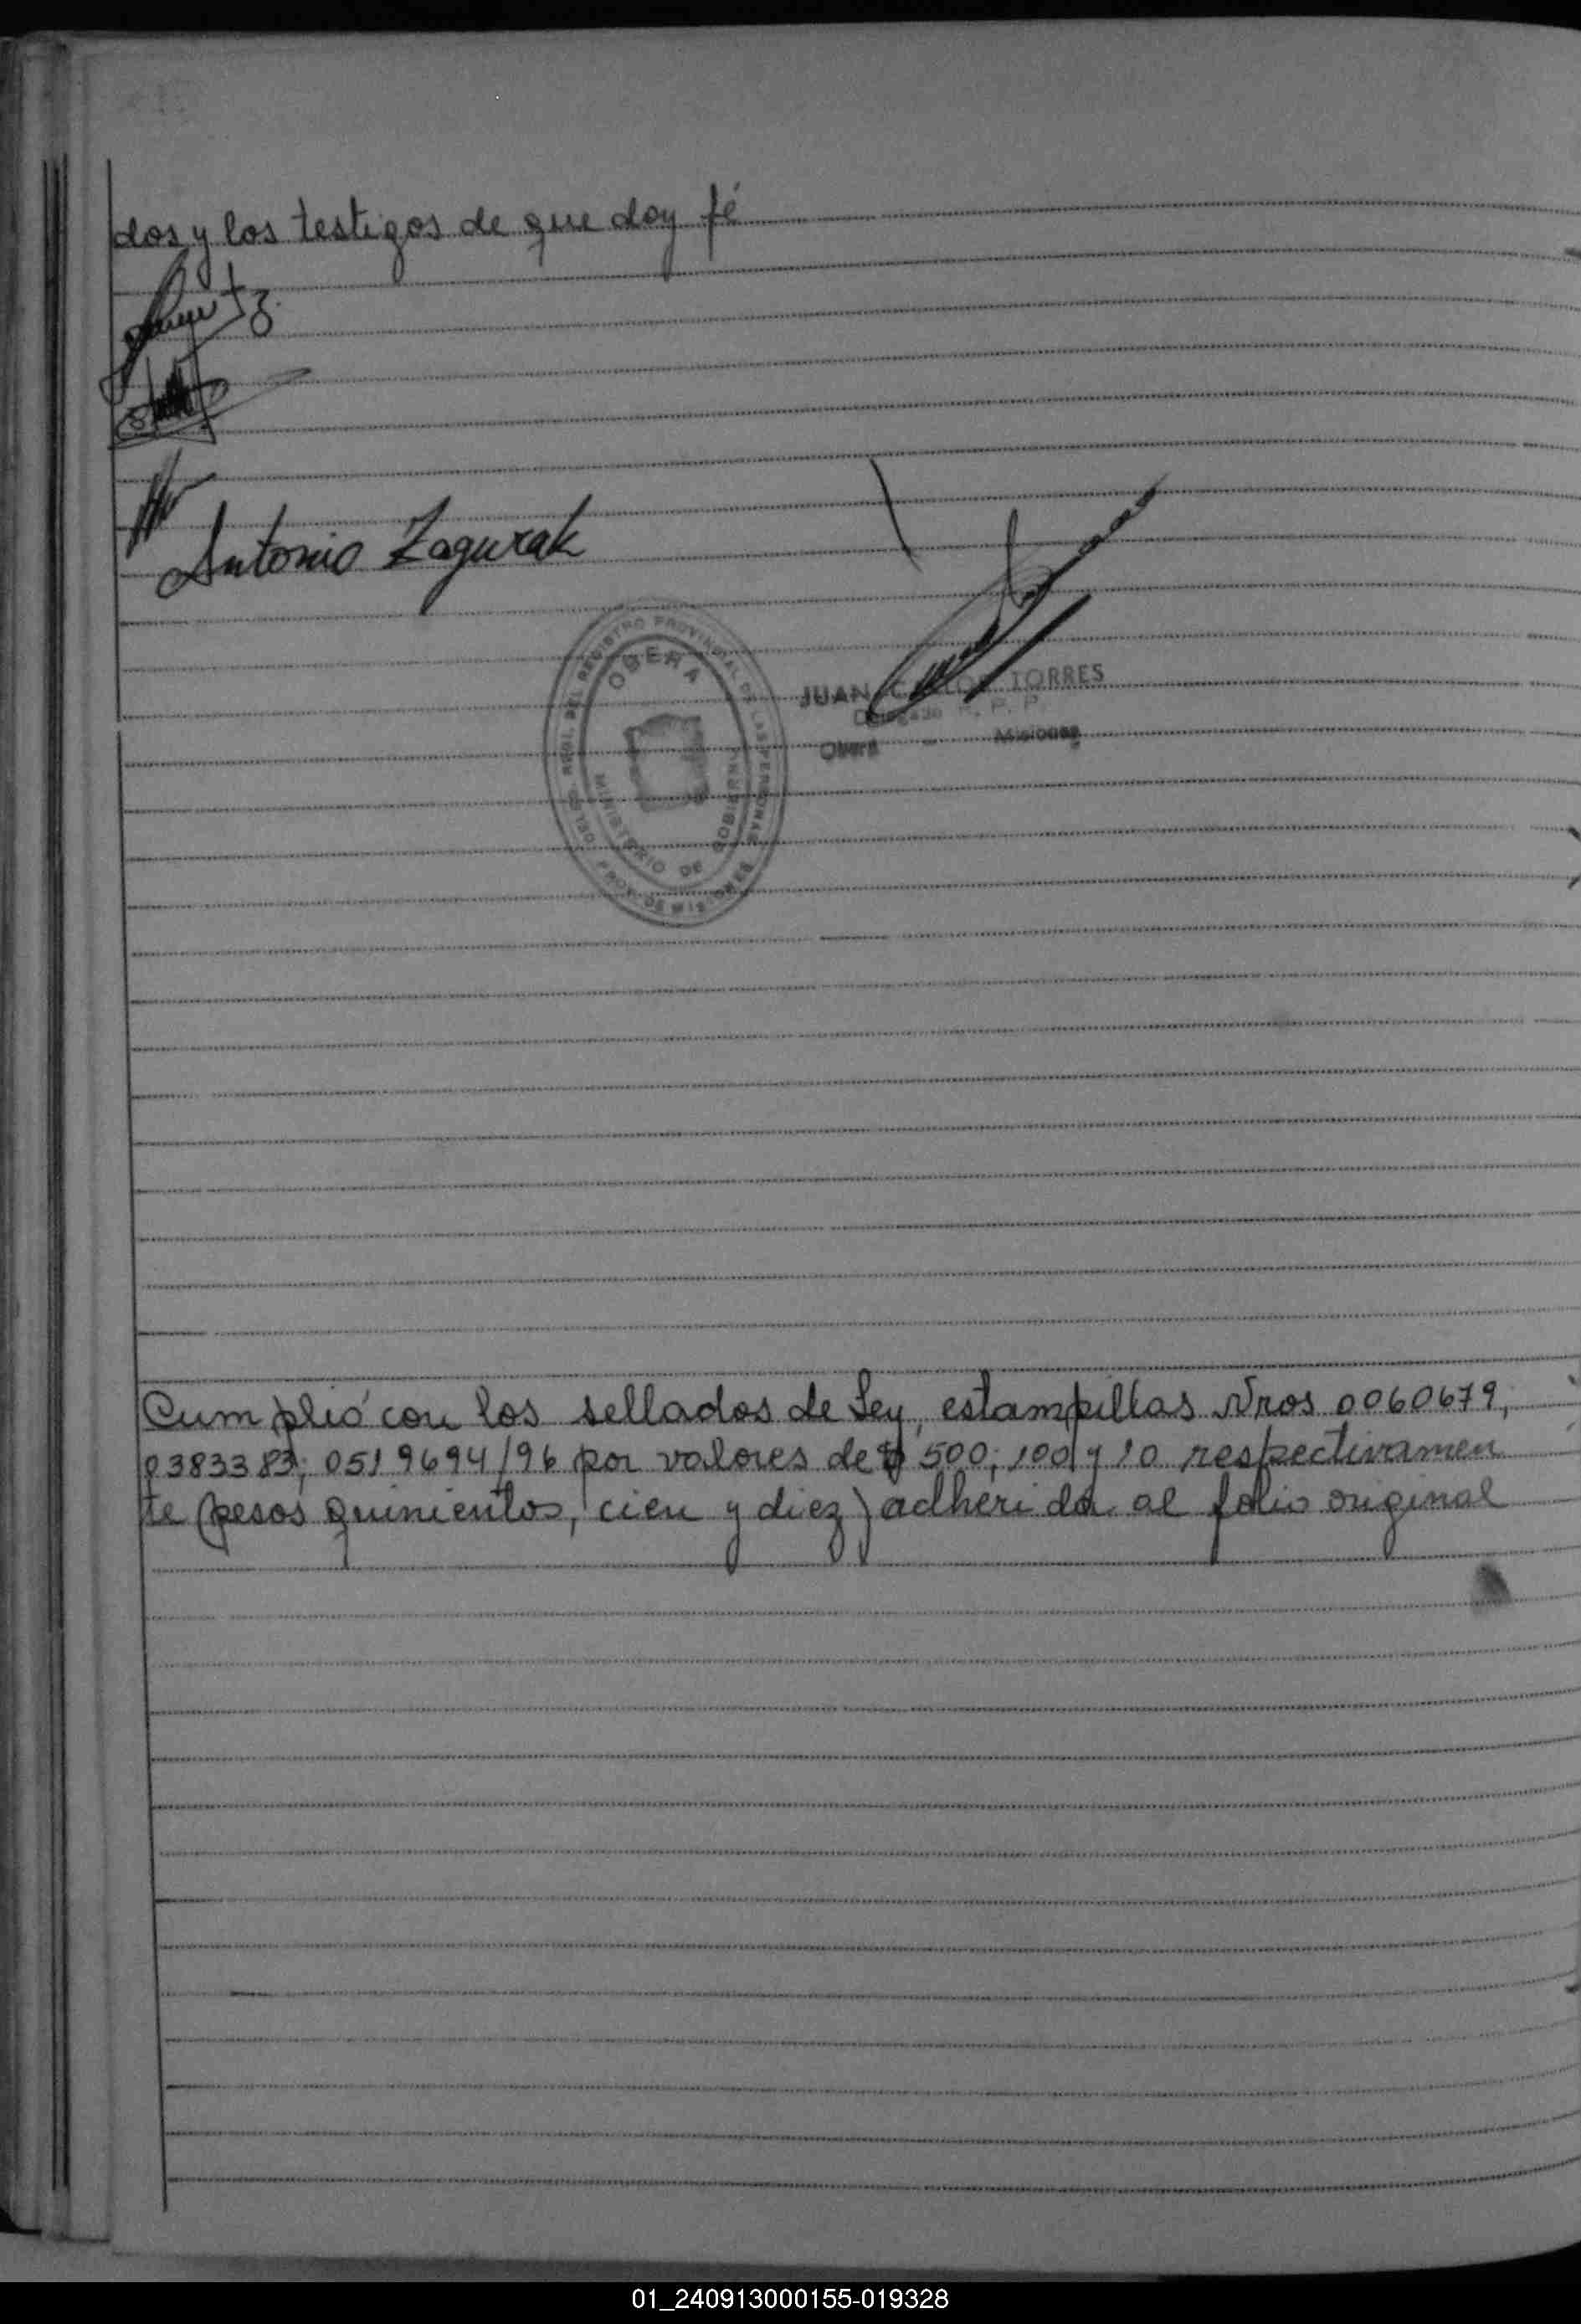 dos y los testigos de que doy fé
Antonio Zagurak
DEL REGISTRO PROVINCIAL DE LAS PERSONAS
OBERA
MINISTERIO DE GOBIERNO
PROV. DE MISIONES
JUAN CARLOS TORRES
Delegado R. P. P.
Oberá - Misiones
Cumplió con los sellados de Ley, estampillas Nros 0060679,
0383383; 0519694/96 por valores de $ 500; 100 y 10 respectivamen
te (pesos quinientos, cien y diez) adherida al folio original
01_240913000155-019328